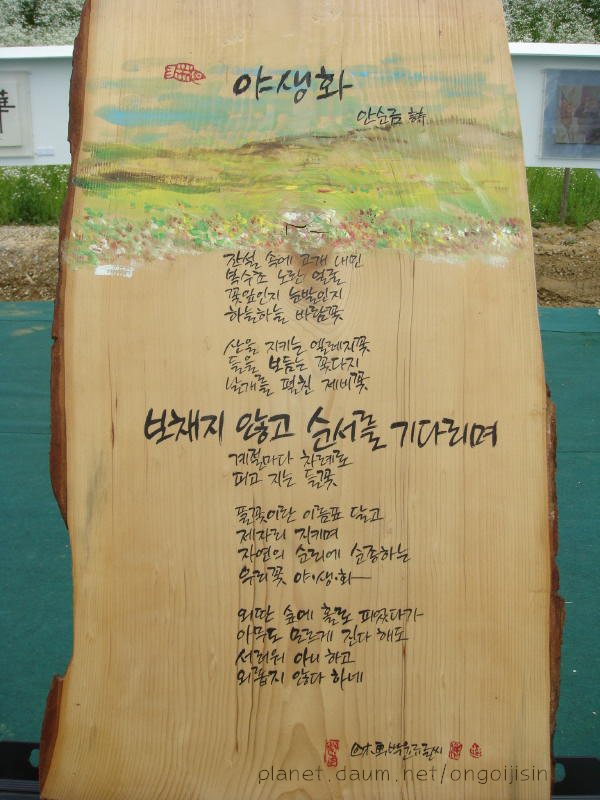 야생화
안순금 詩
잔설 속에 고개 내민
복수초 노란 얼굴
꽃잎인지 눈발인지
하늘하늘 바람꽃
산을 지키는 엘레지꽃
들을 보듬는 꽃다지
날개를 펼친 제비꽃
보채지 않고 순서를 기다리며
계절마다 차례로
피고 지는 들꽃
풀꽃이란 이름표 달고
제자리 지키며
자연의 순리에 순종하는
우리꽃 야·생·화
외딴 숲에 홀로 피었다가
아무도 모르게 진다 해도
서러워 아니 하고
외롭지 않다 하네
planet.daum.net/ongoijisin